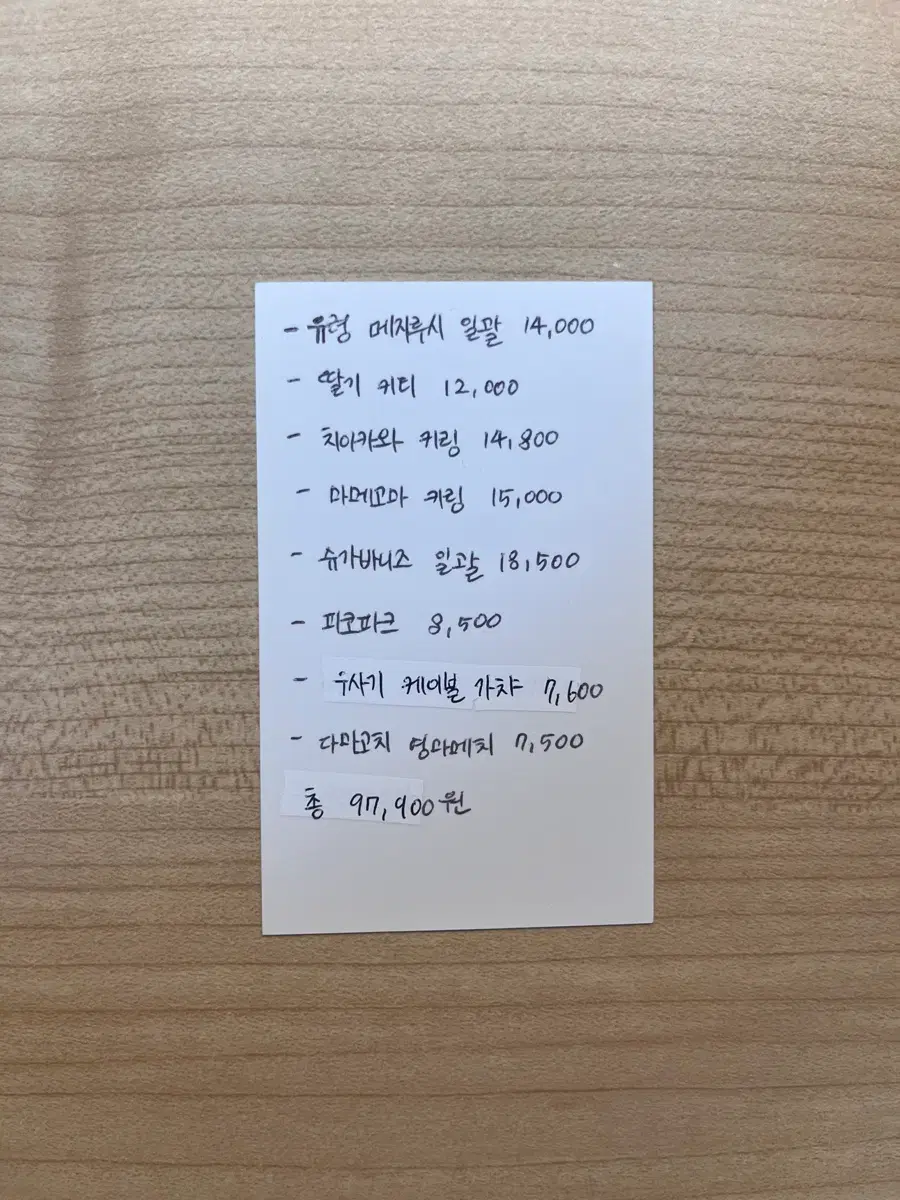 - 유령 메지루시 일괄 14,000
- 딸기 키티 12,000
- 치이카와 키링 14,800
- 마메고마 키링 15,000
- 슈가바니즈 일괄 18,500
- 피코파크 8,500
- 우사기 케이블 가챠 7,600
- 다마고치 덩마메치 7,500
총 97,900원